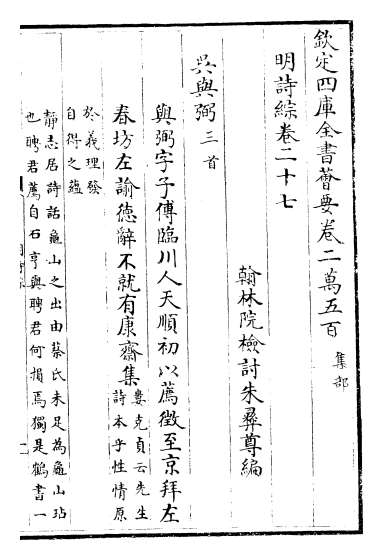 欽定四庫全書薈要卷二萬五百 集部
明詩綜卷二十七
翰林院檢討朱彝尊編
吳與弼 三首
與弼字子傅臨川人天順初以薦徵至京拜左
春坊左諭德辭不就有康齋集 婁克貞云先生
詩本乎性情原
於義理發
自得之蘊
靜志居詩話龜山之出由蔡氏未足為龜山玷
也聘君薦自石亨與聘君何損焉獨是鶴書一